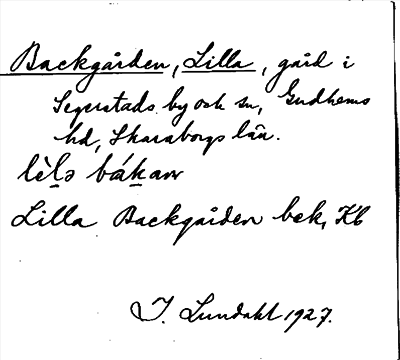 Backgården, Lilla, gård i
Segerstads by och sn, Gudhems
hd, Skaraborgs län.
lèlə bákan
Lilla Backgården bek, Kb
I. Lundahl 1927.